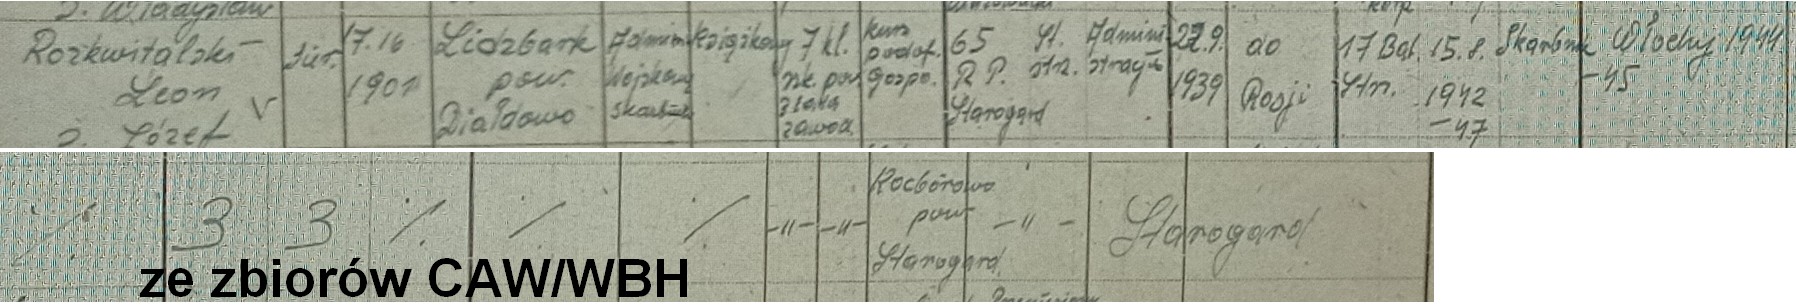 s. Władysław
Rozkwitalski
Leon V
s. Józef
sier.
17.10
1901
Lidzbark
pow.
Działdowo
Admini
Wojskowy
Książkowy
7 kl.
nk. pow.
zawod.
kurs
podof.
gospo.
65
R P.
Starogard
St.
str.
Admini
stracyj
22.9.
1939
do
Rosji
17 Bat.
Str.
15.8.
1942
-47
Skarbnik
Włochy 1944
-45
·/. 3 3 ·/. / / -"- -"-
Rocborowo
pow
Starogard
-"-
Starogard
ze zbiorów CAW/WBH